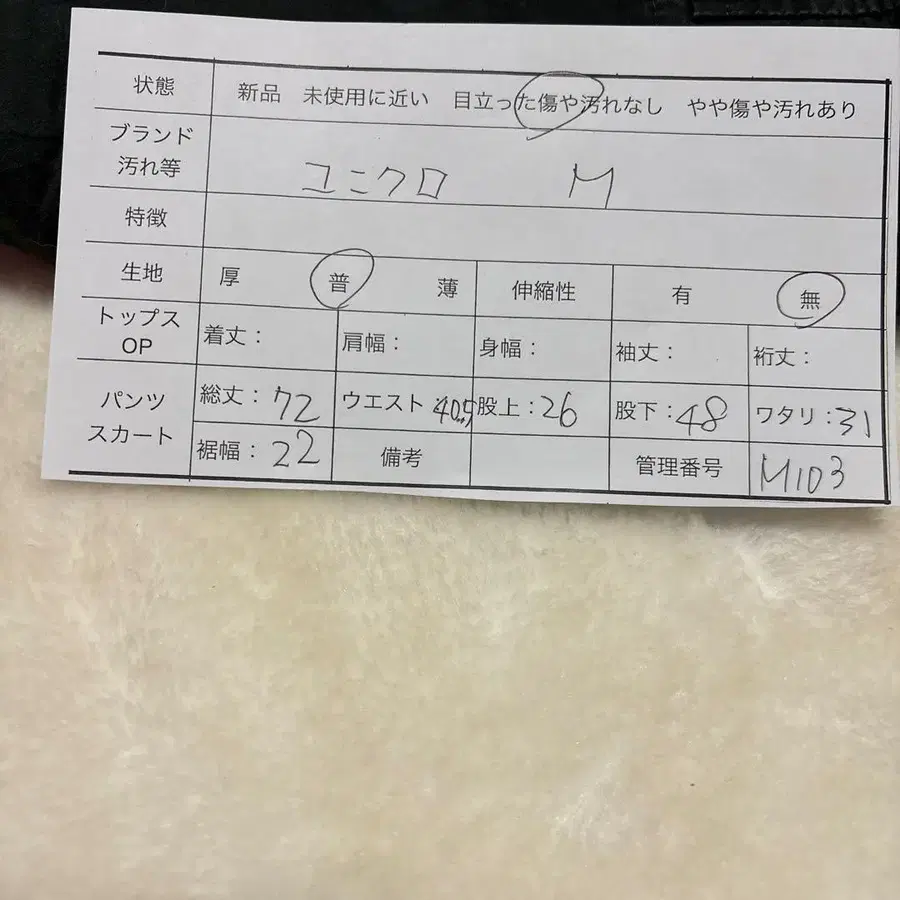 状態 新品 未使用に近い 目立った傷や汚れなし やや傷や汚れあり
ブランド
汚れ等 ユニクロ M
特徴
生地 厚 普 薄 伸縮性 有 無
トップス
OP 着丈： 肩幅： 身幅： 袖丈： 裄丈：
パンツ
スカート 総丈：72 ウエスト 40.5 股上：26 股下：48 ワタリ：31
裾幅：22 備考 管理番号 M103